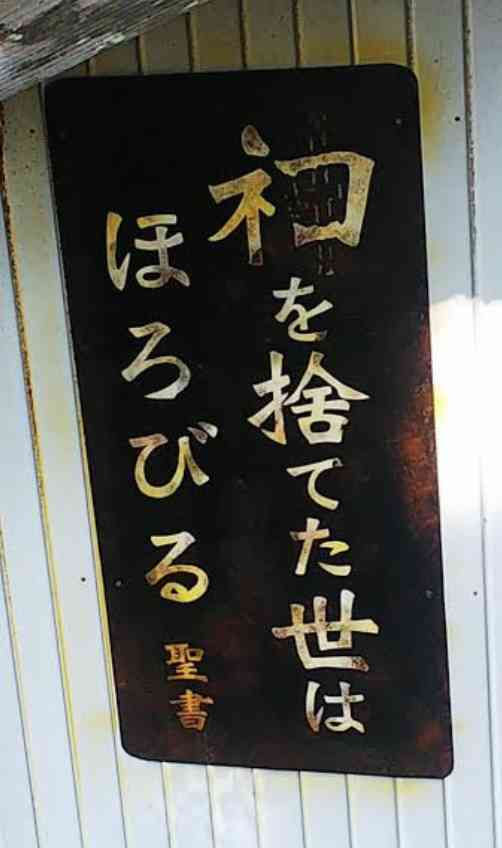 ネコを捨てた世は
ほろびる
聖書